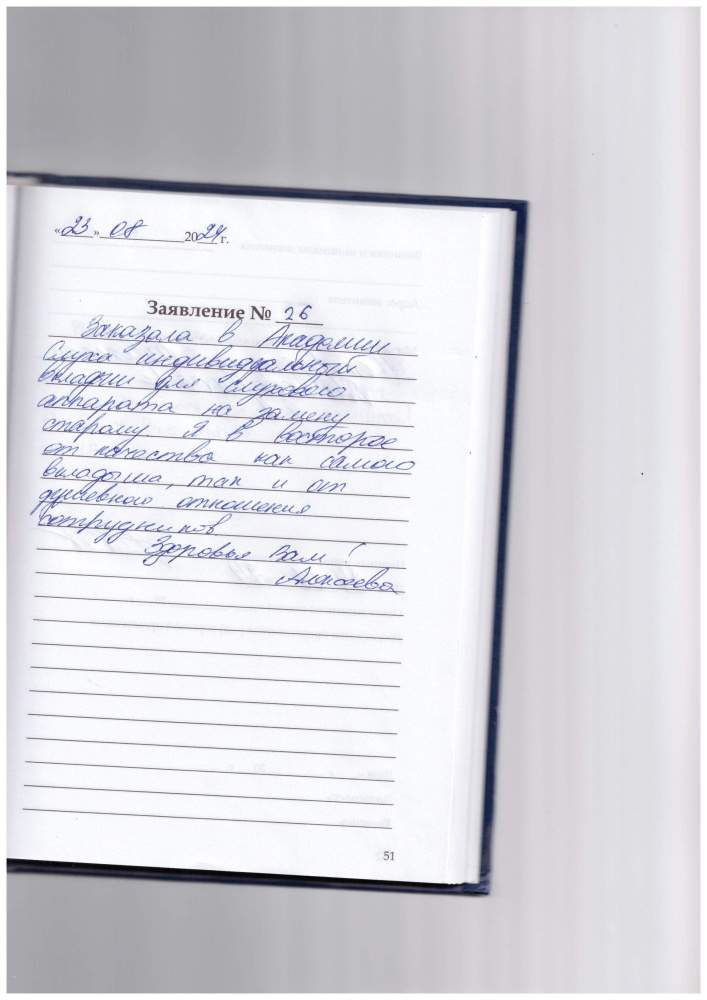 «23» 08 2024 г.
Заявление № 26
Заказала в Академии
Слуха индивидуальный
вкладыш для слухового
аппарата на замену
старому Я в восторге
от качества как самого
вкладыша, так и от
душевного отношения
сотрудников
Здоровья Вам!
Алексеева
51